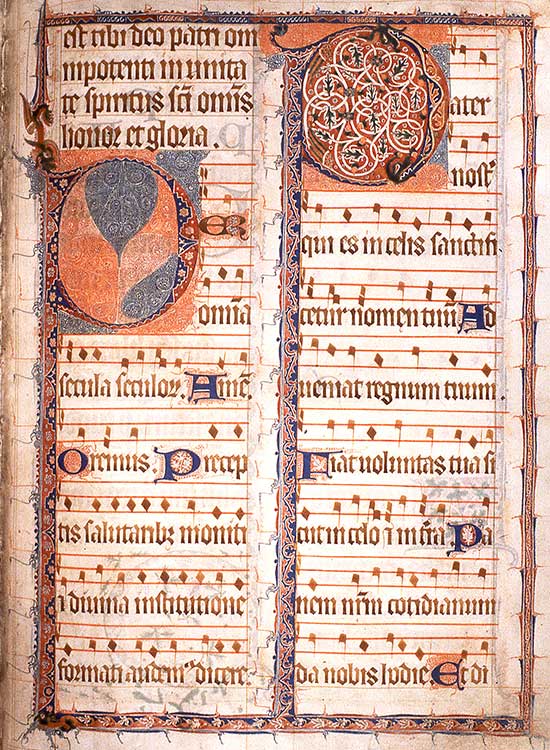 est tibi deo patri om
nipotenti in unita
te spiritus sc̄i om̄is
honor et gloria.
PER
om̄ia
secula seculoꝝ. Amē.
Oremus. Precep
tis salutaribꝫ moniti
⁊ diuina institutione
formati audemꝰ dicere.
Pater
nost̄
qui es in celis sanctifi
cetur nomen tuū Ad
ueniat regnum tuum.
Fiat uoluntas tua si
cut in celo ⁊ in t̄ra Pa
nem nr̄m cotidianum
da nobis hodie. Et di